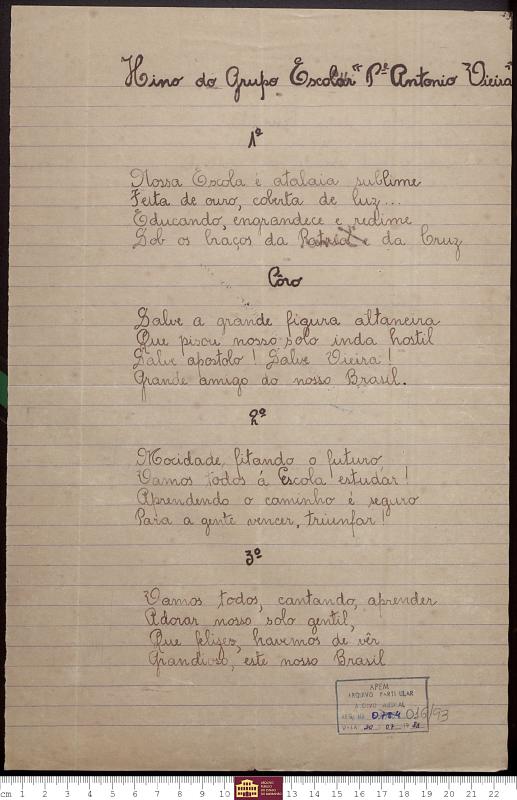 Hino do Grupo Escolar "Pe Antonio Vieira"
1º
Nossa Escola é atalaia sublime
Feita de ouro, coberta de luz...
Educando, engrandece e redime
Sob os braços da Patria e da Cruz
Côro
Salve a grande figura altaneira
Que pisou nosso solo inda hostil
Salve apostolo! Salve Vieira!
Grande amigo do nosso Brasil.
2º
Mocidade, fitando o futuro,
Vamos todos á Escola estudar!
Aprendendo o caminho é seguro
Para a gente vencer, triunfar!
3º
Vamos todos, cantando, aprender
Adorar nosso solo gentil,
Que felizes, havemos de vêr
Grandioso, este nosso Brasil
APEM
ARQUIVO PARTICULAR
016/93
cm 1 2 3 4 5 6 7 8 9 10 13 14 15 16 17 18 19 20 21 22